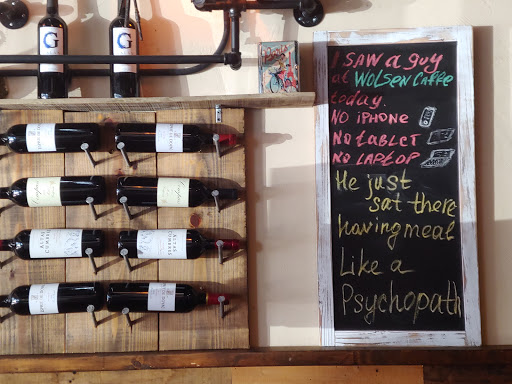 G
G
I SAW a guy
at WOLSEN Caffe
today.
NO iPHONE
No tablET
NO LAPTOP
He just
sat there
having meal
Like a
Psychopath